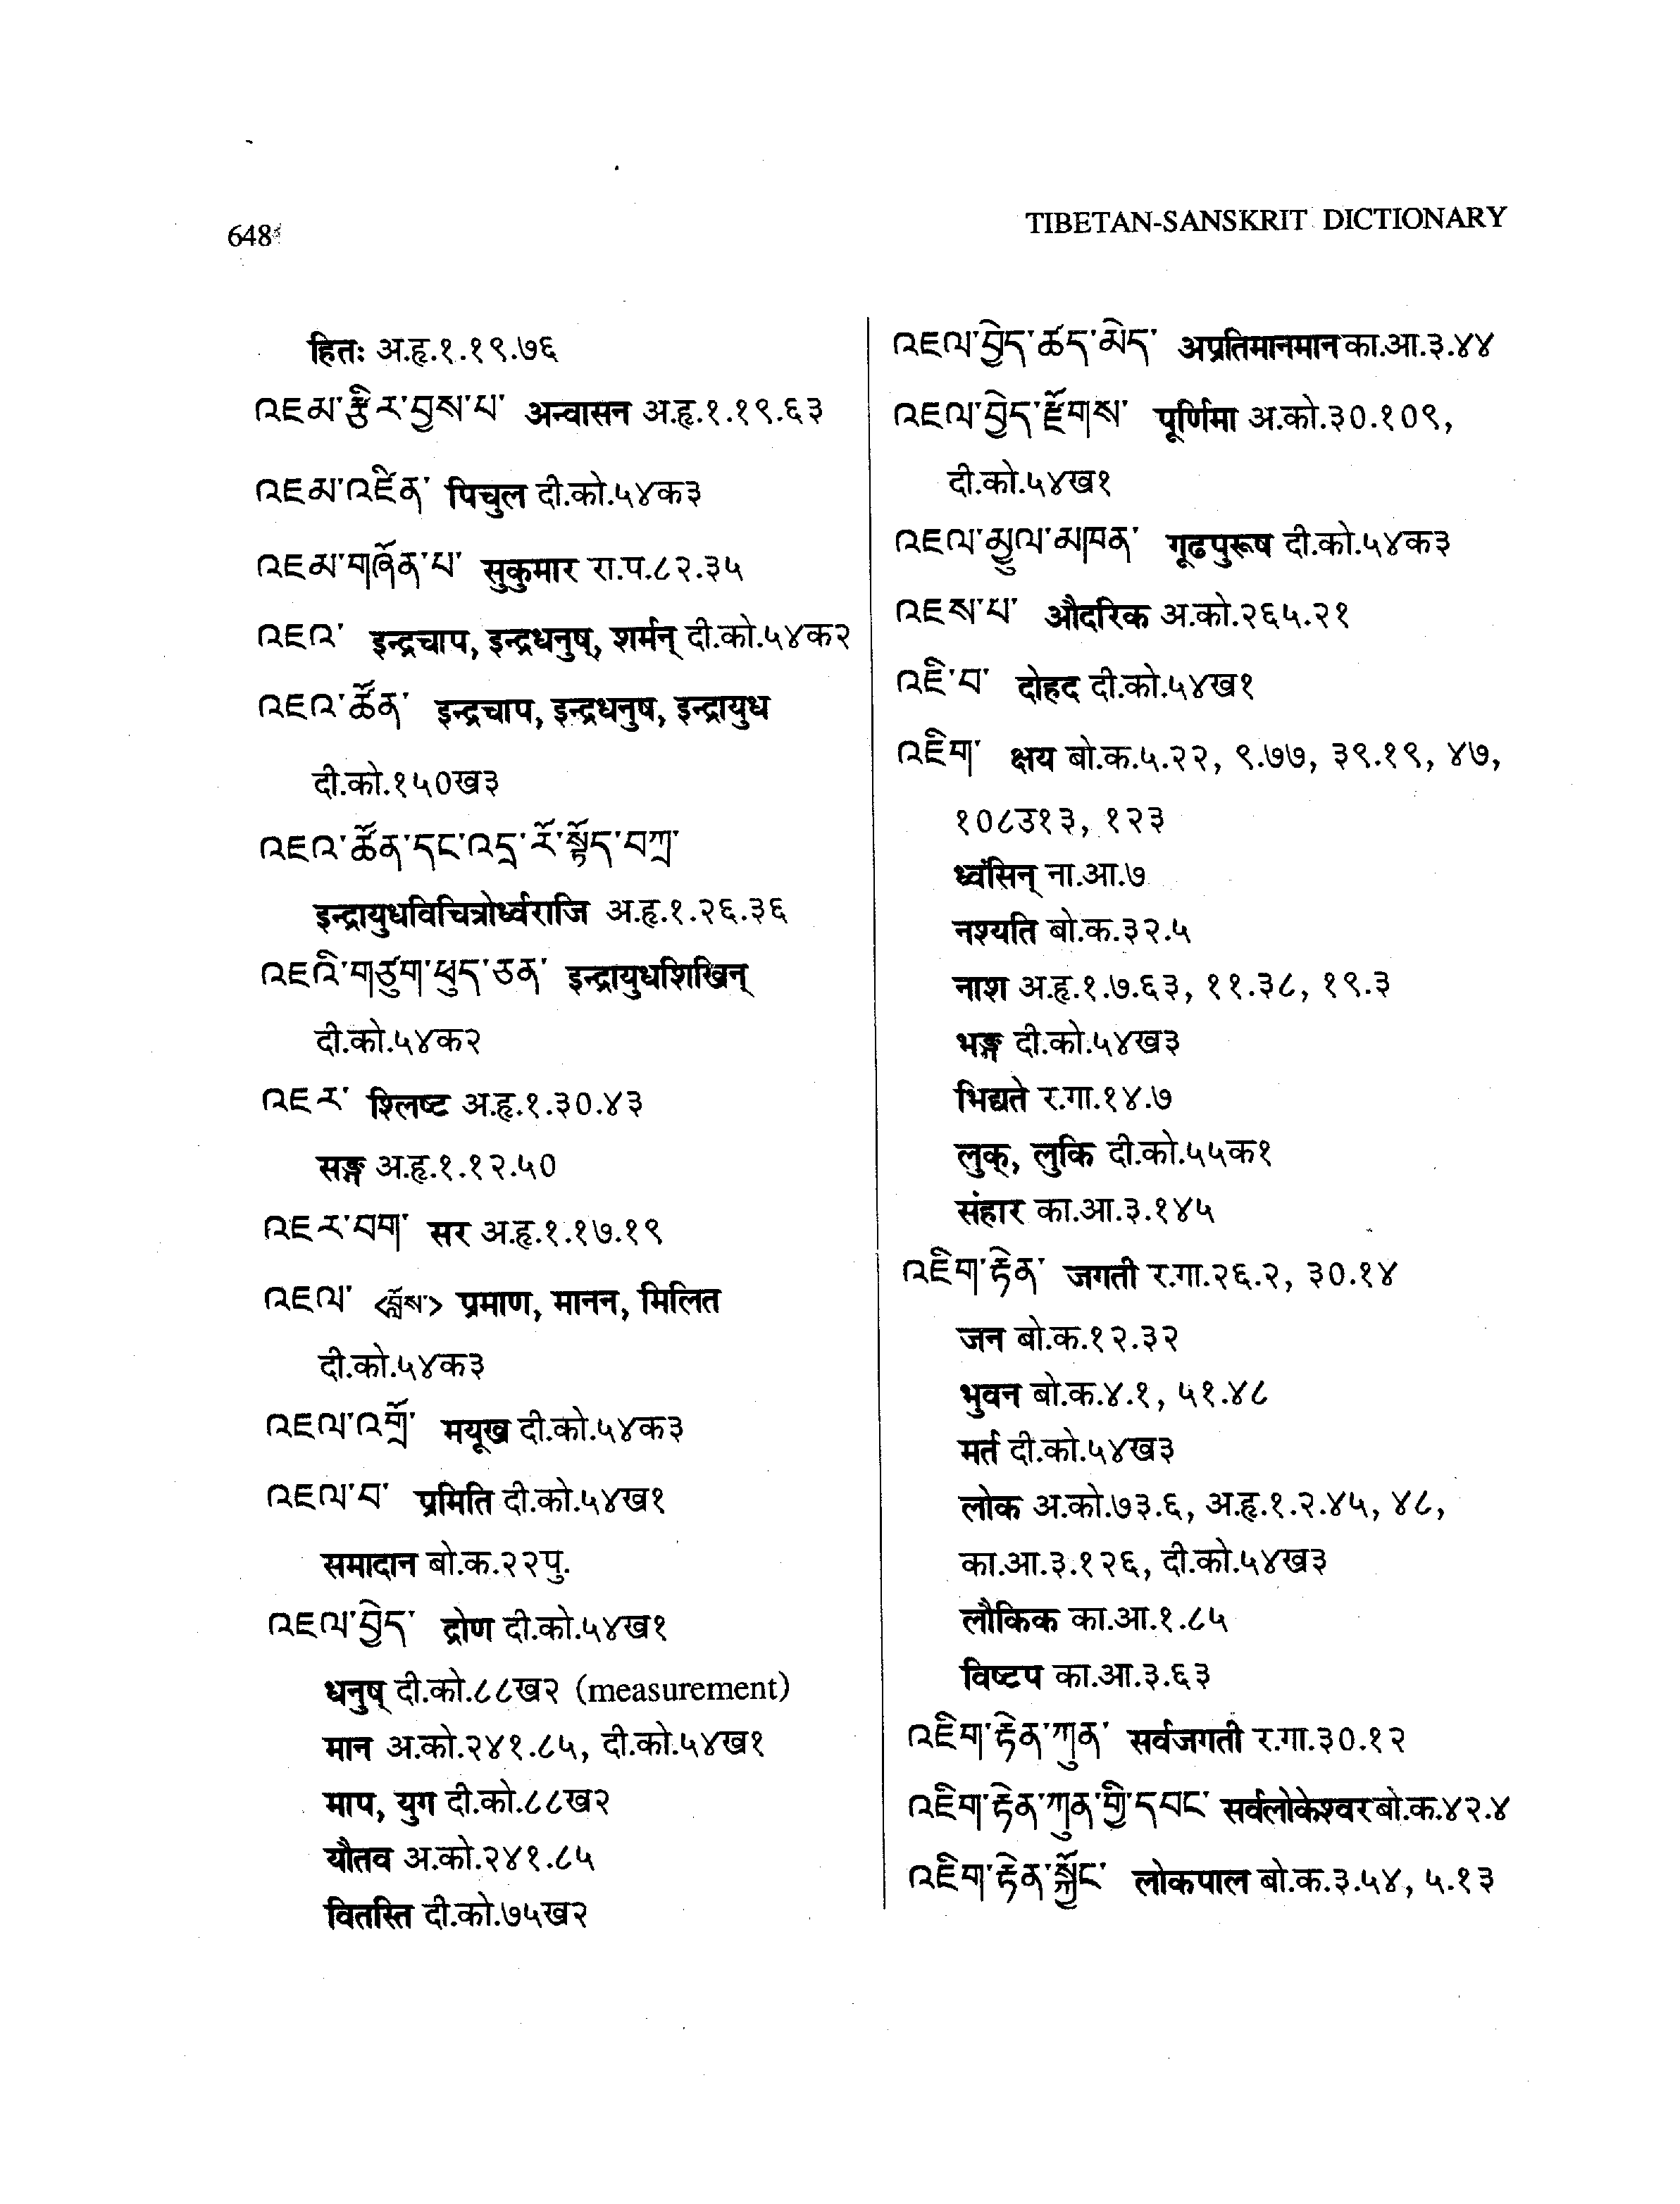 648
TIBETAN-SANSKRIT DICTIONARY
हितः अ.हृ.१.१९.७६
འཇམ་རྩིར་བྱས་པ་ अन्वासन अ.हृ.१.१९.६३
འཇམ་འཛིན་ पिचुल दी.को.५४क३
འཇམ་གཞོན་པ་ सुकुमार रा.प.८२.३५
འཇའ་ इन्द्रचाप, इन्द्रधनुष्, शर्मन् दी.को.५४क२
འཇའ་ཚོན་ इन्द्रचाप, इन्द्रधनुष, इन्द्रायुध
दी.को.१५०ख३
འཇའ་ཚོན་དང་འདྲ་རོ་སྟོད་བཀྲ་
इन्द्रायुधविचित्रोर्ध्वराजि अ.हृ.१.२६.३६
འཇའི་གཙུག་ཕུད་ཅན་ इन्द्रायुधशिखिन्
दी.को.५४क२
འཇར་ श्लिष्ट अ.हृ.१.३०.४३
सङ्ग अ.हृ.१.१२.५०
འཇར་བག་ सर अ.हृ.१.१७.१९
འཇལ་ <བློས་> प्रमाण, मानन, मिलित
दी.को.५४क३
འཇལ་འགྲོ་ मयूख दी.को.५४क३
འཇལ་བ་ प्रमिति दी.को.५४ख१
समादान बो.क.२२पु.
འཇལ་བྱེད་ द्रोण दी.को.५४ख१
धनुष् दी.को.८८ख२ (measurement)
मान अ.को.२४१.८५, दी.को.५४ख१
माप, युग दी.को.८८ख२
यौतव अ.को.२४१.८५
वितस्ति दी.को.७५ख२
འཇལ་བྱེད་ཚད་མེད་ अप्रतिमानमान का.आ.३.४४
འཇལ་བྱེད་རྫོགས་ पूर्णिमा अ.को.३०.१०९,
दी.को.५४ख१
འཇལ་མྱུལ་མཁན་ गूढपुरूष दी.को.५४क३
འཇས་པ་ औदरिक अ.को.२६५.२१
འཇི་བ་ दोहद दी.को.५४ख१
འཇིག་ क्षय बो.क.५.२२, ९.७७, ३९.१९, ४७,
१०८उ१३, १२३
ध्वंसिन् ना.आ.७
नश्यति बो.क.३२.५
नाश अ.हृ.१.७.६३, ११.३८, १९.३
भङ्ग दी.को.५४ख३
भिद्यते र.गा.१४.७
लुक्, लुकि दी.को.५५क१
संहार का.आ.३.१४५
འཇིག་རྟེན་ जगती र.गा.२६.२, ३०.१४
जन बो.क.१२.३२
भुवन बो.क.४.१, ५१.४८
मर्त दी.को.५४ख३
लोक अ.को.७३.६, अ.हृ.१.२.४५, ४८,
का.आ.३.१२६, दी.को.५४ख३
लौकिक का.आ.१.८५
विष्टप का.आ.३.६३
འཇིག་རྟེན་ཀུན་ सर्वजगती र.गा.३०.१२
འཇིག་རྟེན་ཀུན་གྱི་དབང་ सर्वलोकेश्वर बो.क.४२.४
འཇིག་རྟེན་སྐྱོང་ लोकपाल बो.क.३.५४, ५.१३